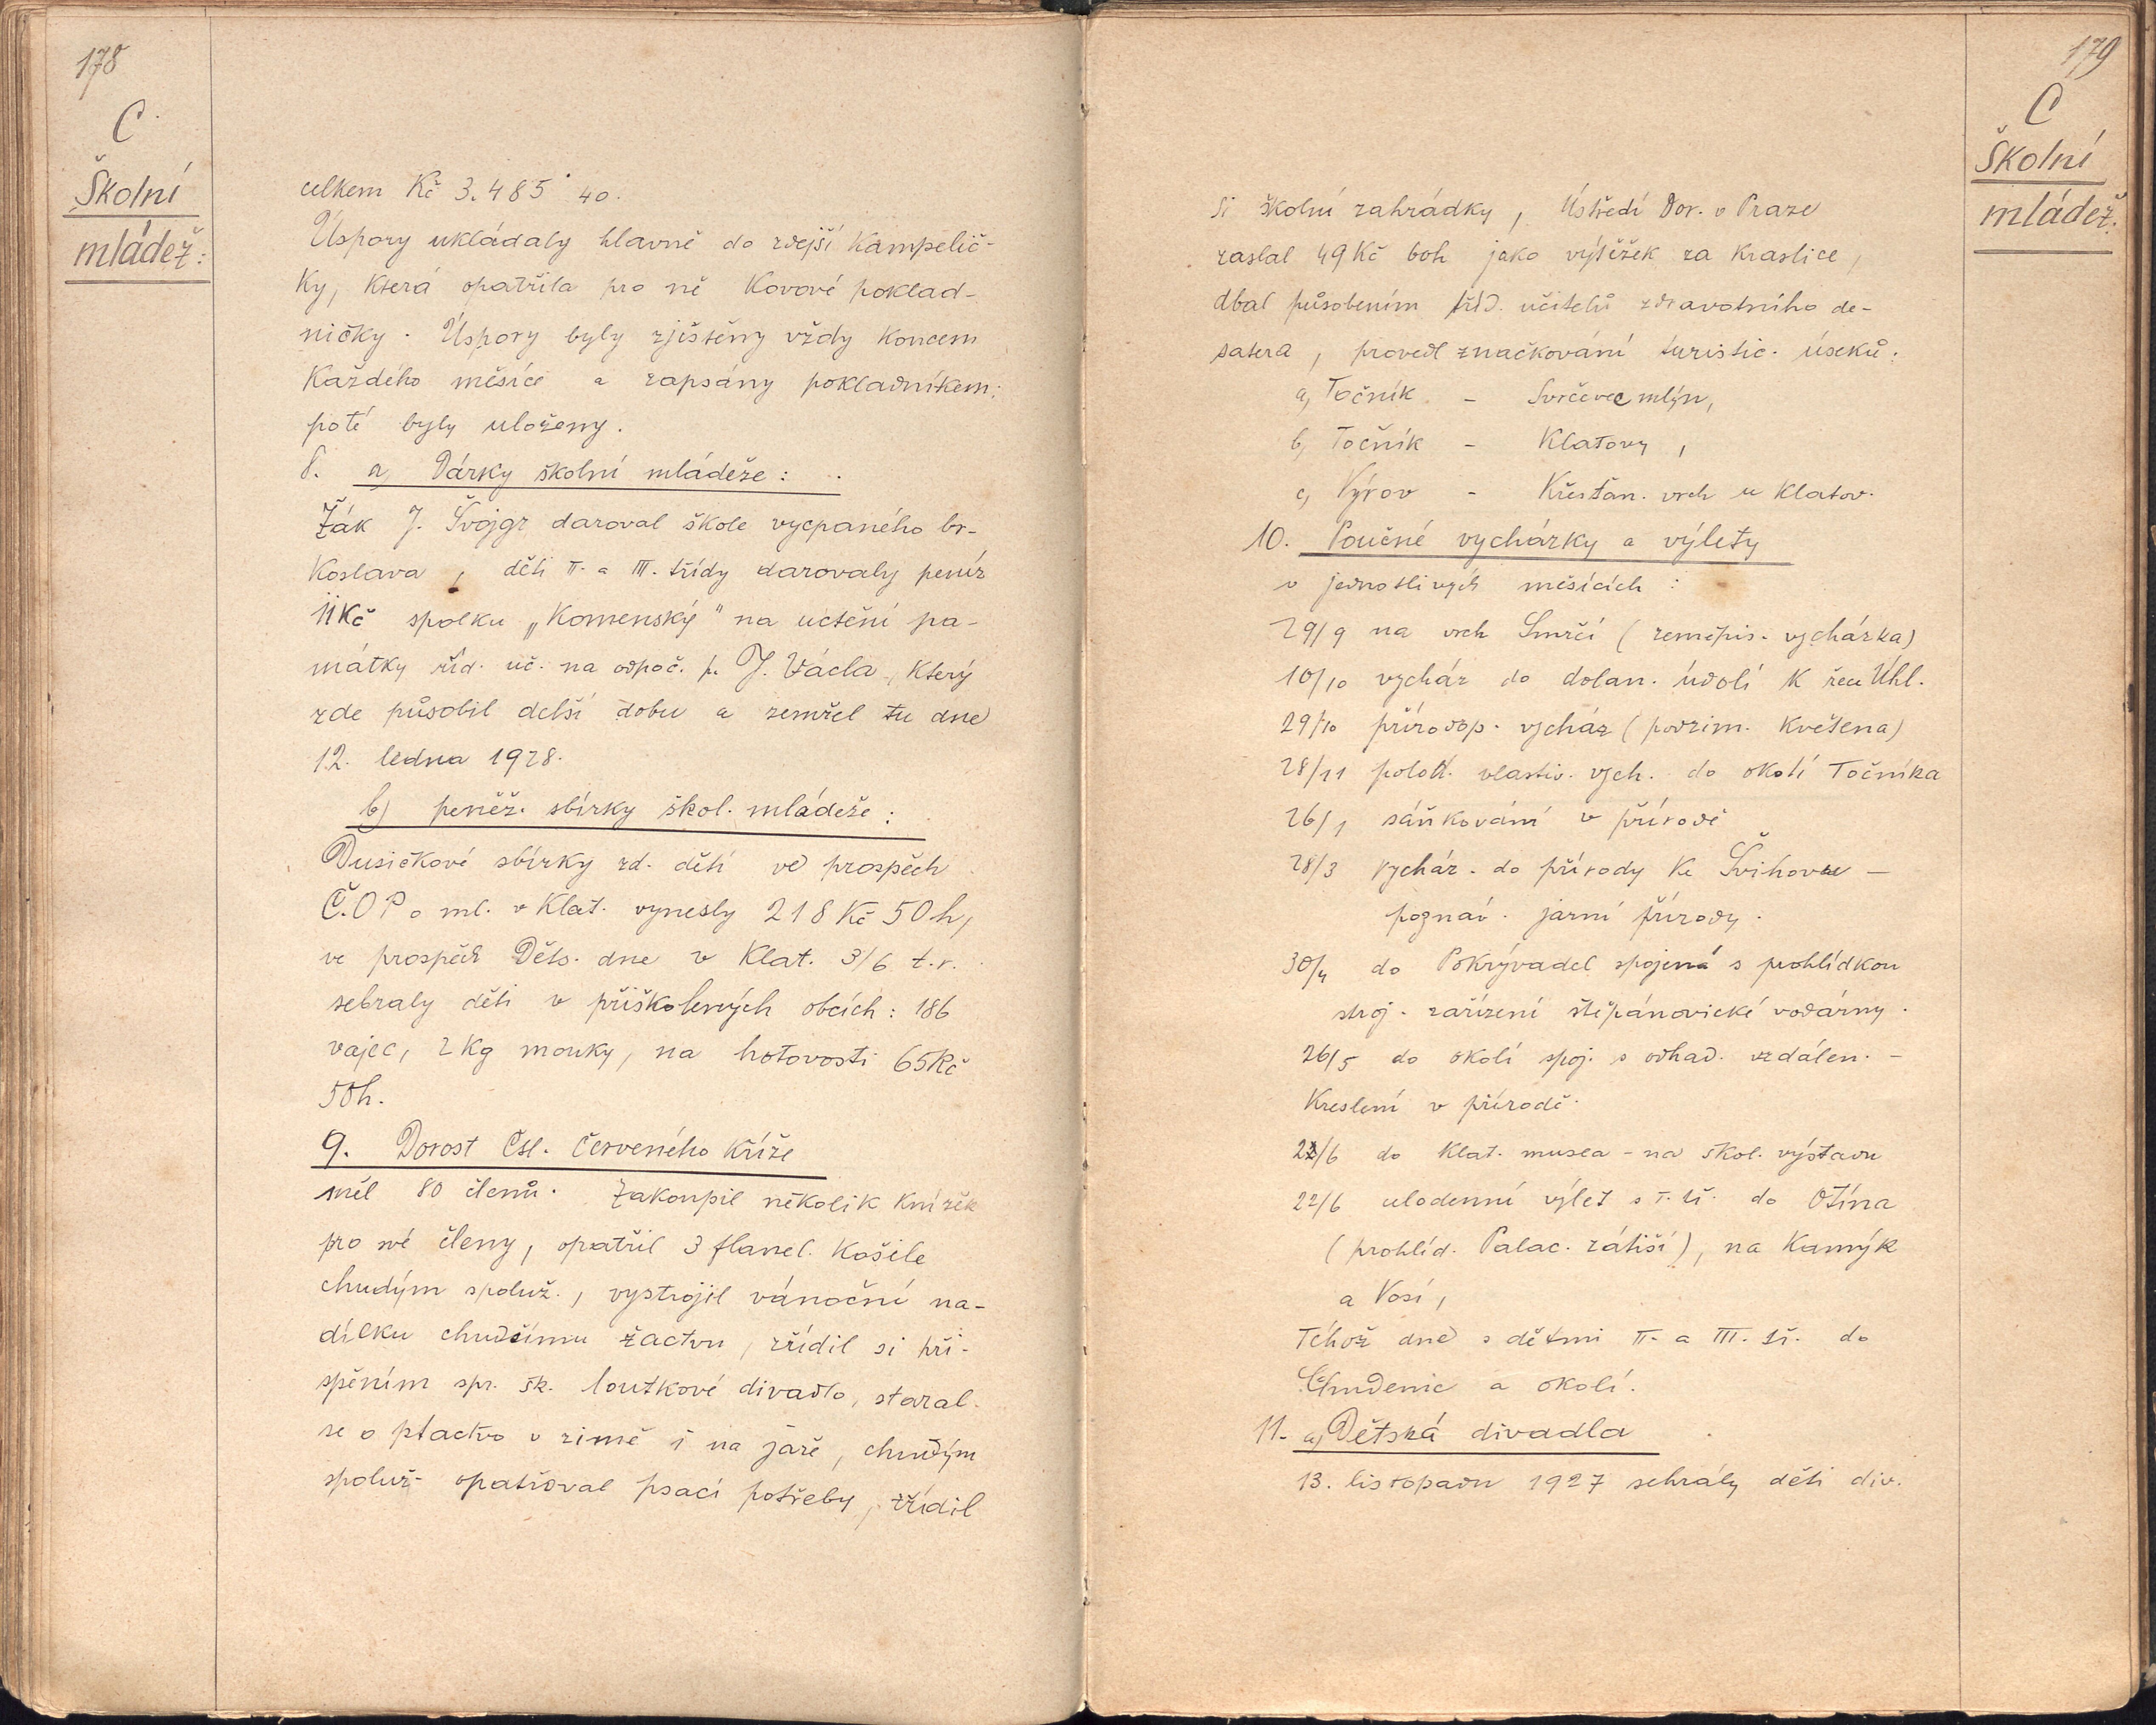 178
C
Školní
mládež:
celkem Kč 3.485˙40.
Úspory ukládaly hlavně do zdejší Kampelič-
ky, která opatřila pro ně kovové poklad-
ničky. Úspory byly zjištěny vždy koncem
každého měsíce a zapsány pokladníkem;
poté byly uloženy.
8. a, Dárky školní mládeže:
Žák J. Švojgr daroval škole vycpaného br-
koslava, děti II. a III. třídy darovaly peníz
11Kč spolku „Komenský" na uctění pa-
mátky říd. uč. na odpoč. p. J. Václa, který
zde působil delší dobu a zemřel tu dne
12. ledna 1928.
b) peněž. sbírky škol. mládeže:
Dusičkové sbírky zd. dětí ve prospěch
Č.O P o ml. v Klat. vynesly 218 Kč 50 h,
ve prospěch Děts. dne v Klat. 3/6 t.r.
sebraly děti v přiškolených obcích: 186
vajec, 2 Kg mouky, na hotovosti 65Kč
50h.
9. Dorost Čsl. Červeného kříže
měl 80 členů. Zakoupil několik knížek
pro své členy, opatřil 3 flanel. košile
chudým spoluž., vystrojil vánoční na-
dílku chudšímu žactvu, zřídil si při-
spěním spr. šk. loutkové divadlo, staral
se o ptactvo v zimě i na jaře, chudým
spoluž. opatřoval psací potřeby, zřídil
179
C
Školní
mládež.
si školní zahrádky, Ústředí Dor. v Praze
zaslal 49 Kč 60h jako výtěžek za kraslice,
dbal působením tříd. učitelů zdravotního de-
satera, provedl značkování turistic. úseků:
a, Točník - Svrčovec mlýn,
b, Točník - Klatovy,
c, Výrov - Křesťan. vrch u Klatov.
10. Poučné vycházky a výlety
v jednotlivých měsících:
29/9 na vrch Smrčí (zeměpis. vycházka)
10/10 vycház do dolan. údolí k řece Úhl.
29/10 přírodop. vycház (podzim. květena)
28/11 polod. vlastiv. vych. do okolí Točníka
26/1 sáňkování v přírodě
28/3 vycház. do přírody ke Švihovu -
poznáv. jarní přírody.
30/4 do Pokrývadel spojená s prohlídkou
stroj. zařízení štěpánovické vodárny.
26/5 do okolí spoj. s odhad. vzdálen. -
Kreslení v přírodě.
22/6 do Klat. musea - na škol. výstavu
22/6 celodenní výlet s I. tř. do Otína
(prohlíd. Palac. zátiší), na Kamýk
a Vosí,
Téhož dne s dětmi II. a III. tř. do
Chudenic a okolí.
11. a, Dětská divadla
13. listopadu 1927 sehrály děti div.